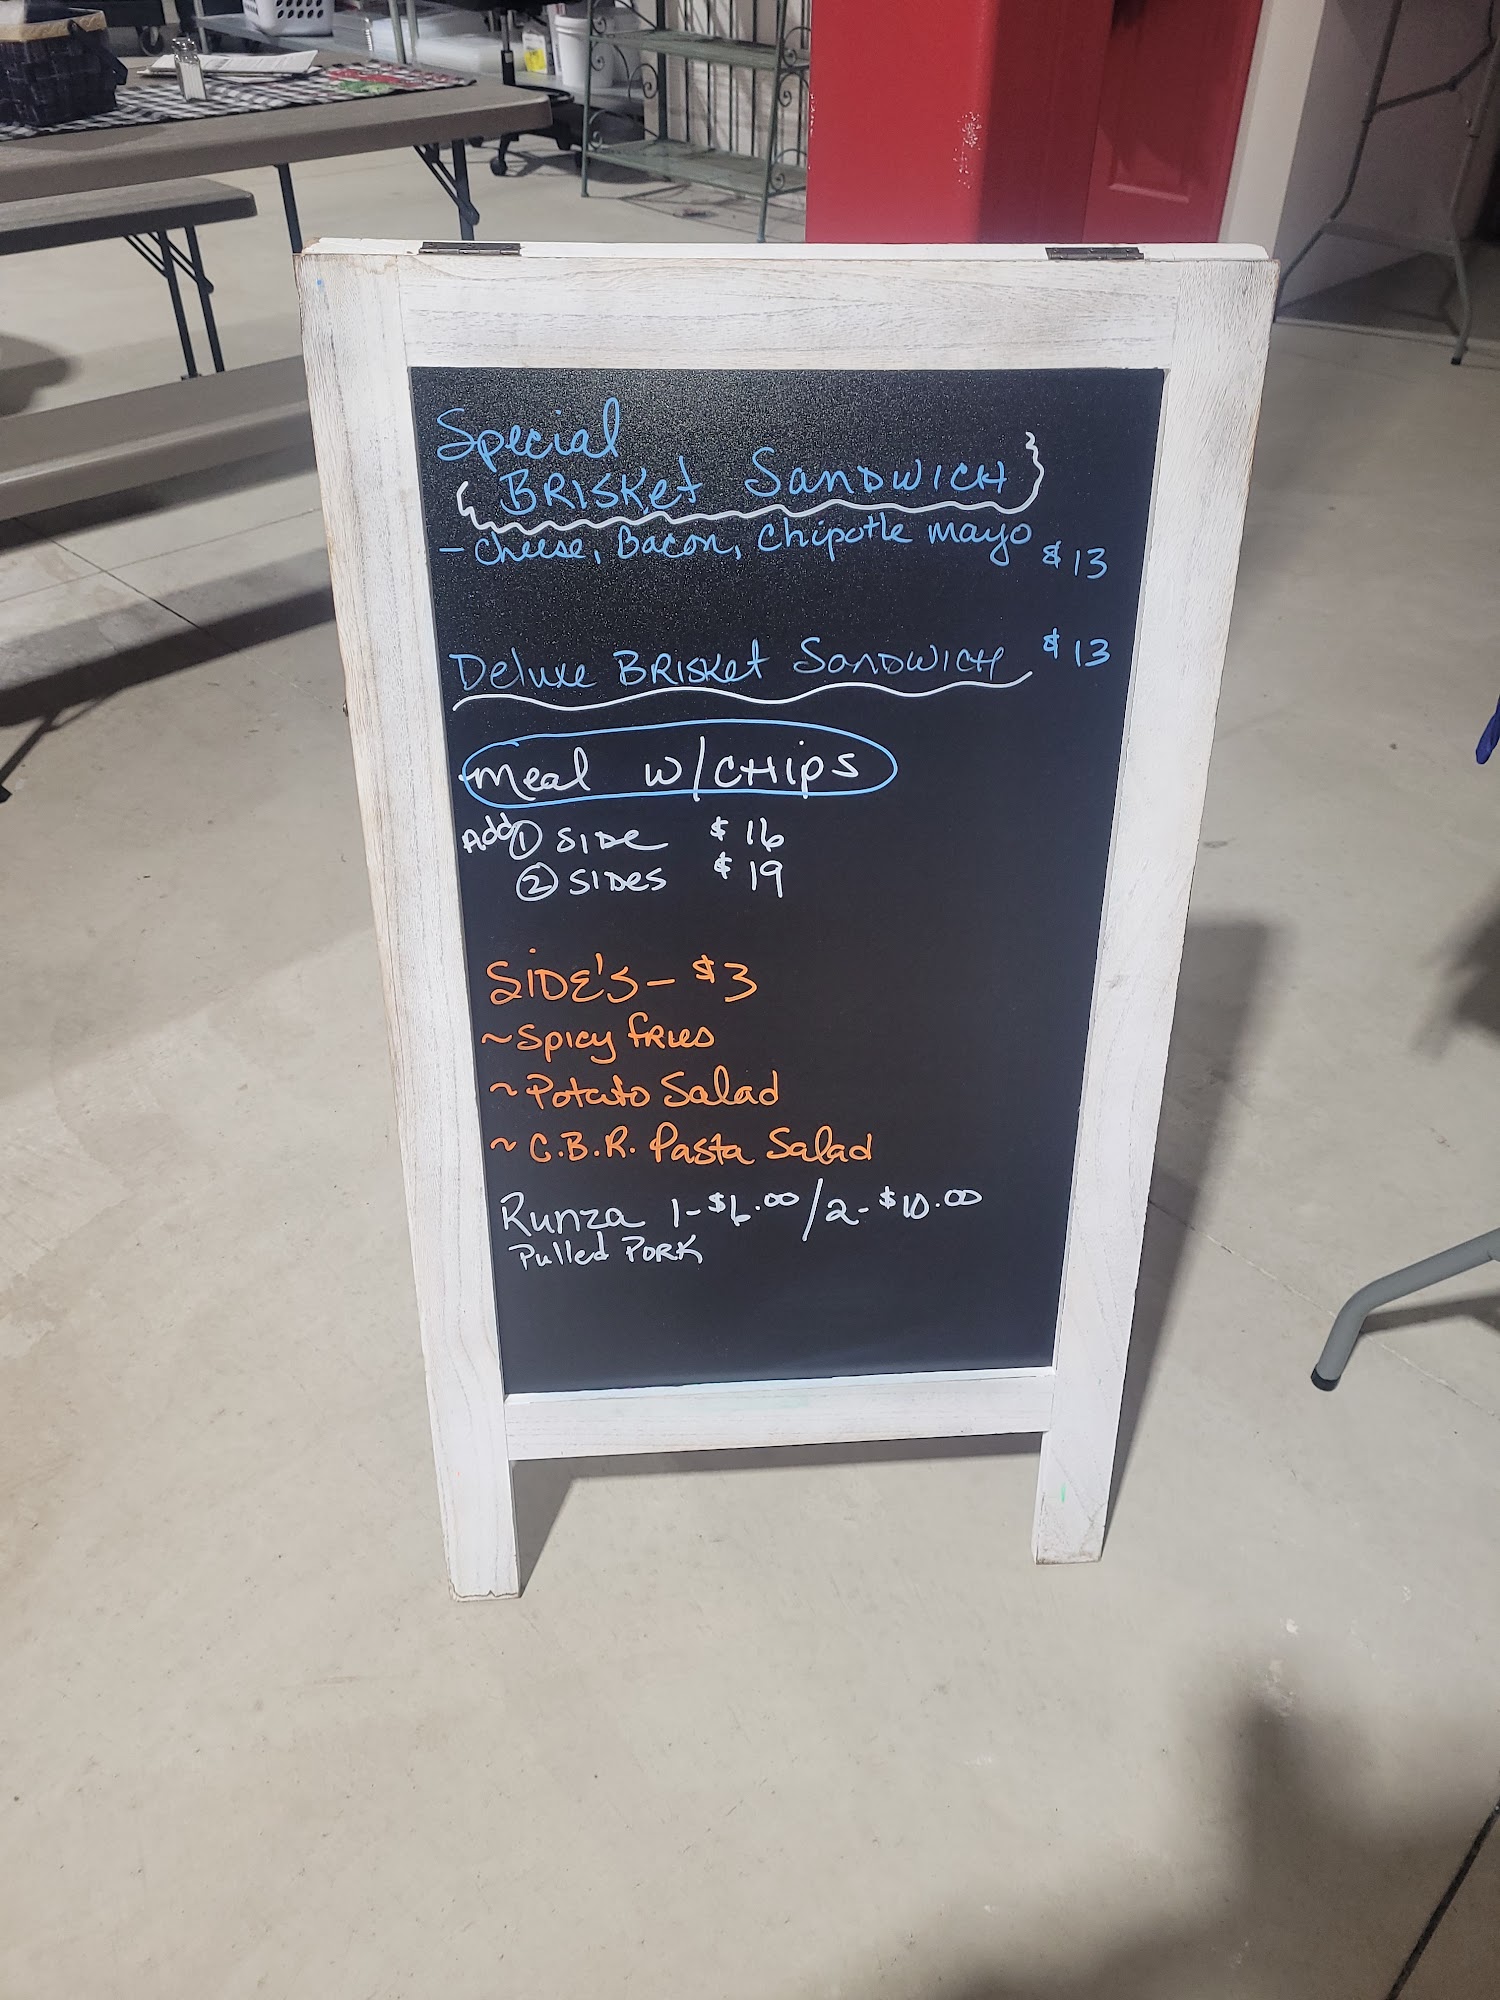 Special
BRISKet SANDWICH
- Cheese, Bacon, Chipotle mayo $13
Deluxe BRISKet SANDWICH $13
Meal w/CHIPS
Add ① SIDE $16
② SIDES $19
SIDE'S - $3
~ Spicy FRIES
~ Potato Salad
~ C.B.R. Pasta Salad
Runza 1- $6.00 / 2- $10.00
Pulled PORK